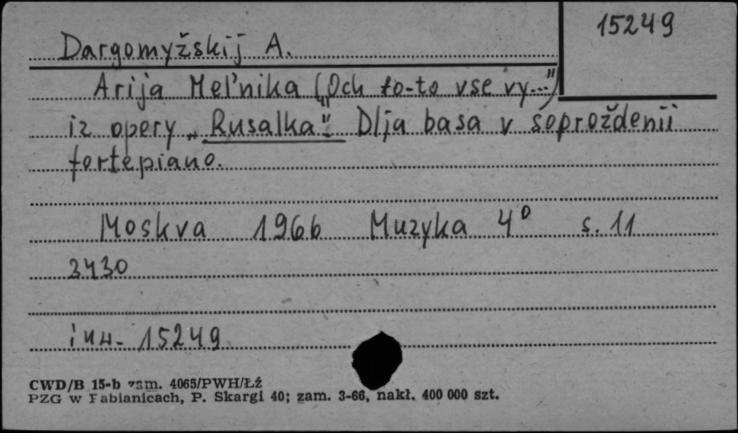 15249
Dargomyžskij A.
Arija Mel'nika („Och to-to vse vy...")
iz opery „Rusalka". Dlja basa v soproždenii
fortepiano.
Moskva 1966 Muzyka 4° s. 11
3430
inw. 15249
CWD/B 15-b zam. 4065/PWH/Łź
PZG w Pabianicach, P. Skargi 40; zam. 3-66, nakł. 400 000 szt.